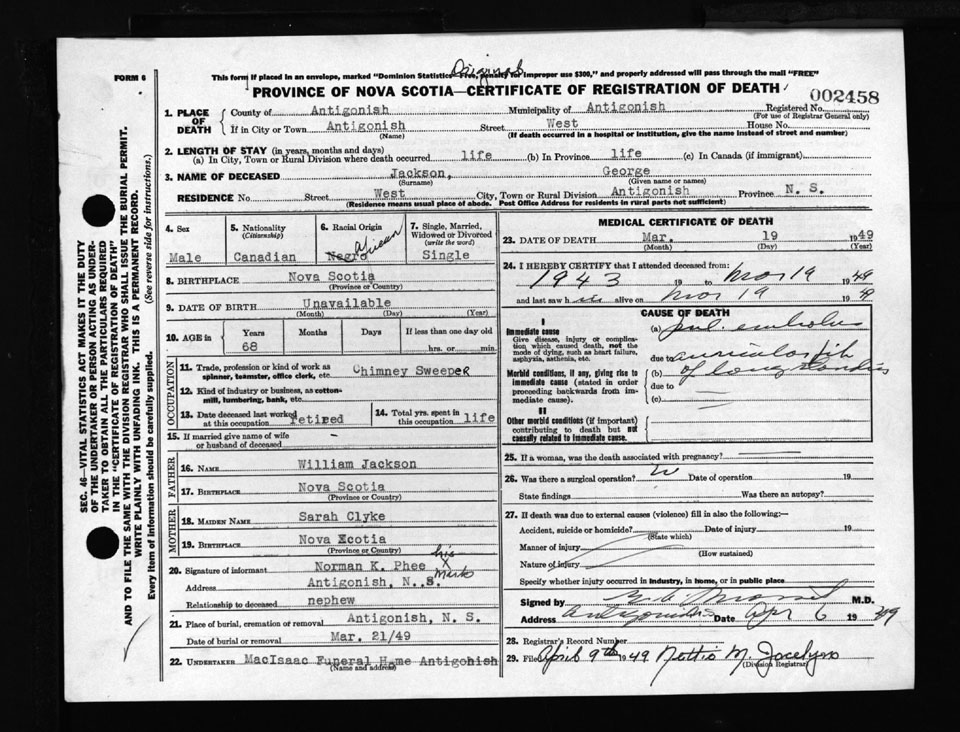 Original
FORM 6
This form if placed in an envelope, marked "Dominion Statistics—Free, penalty for improper use $300," and properly addressed will pass through the mail "FREE"
PROVINCE OF NOVA SCOTIA—CERTIFICATE OF REGISTRATION OF DEATH
002458
1. PLACE OF DEATH
County of Antigonish Municipality of Antigonish Registered No.
(For use of Registrar General only)
If in City or Town Antigonish Street West House No.
(Name) (If death occurred in a hospital or institution, give the name instead of street and number)
2. LENGTH OF STAY (in years, months and days)
(a) In City, Town or Rural Division where death occurred life (b) In Province life (c) In Canada (if immigrant)
3. NAME OF DECEASED Jackson, George
(Surname) (Given name or names)
RESIDENCE No Street West City, Town or Rural Division Antigonish Province N. S.
(Residence means usual place of abode. Post Office Address for residents in rural parts not sufficient)
4. Sex Male
5. Nationality (Citizenship) Canadian
6. Racial Origin Negro African
7. Single, Married, Widowed or Divorced (write the word) Single
8. BIRTHPLACE Nova Scotia
(Province or Country)
9. DATE OF BIRTH Unavailable
(Month) (Day) (Year)
10. AGE in Years Months Days If less than one day old
68 hrs. or min.
OCCUPATION
11. Trade, profession or kind of work as spinner, teamster, office clerk, etc. Chimney Sweeper
12. Kind of industry or business, as cotton-mill, lumbering, bank, etc.
13. Date deceased last worked at this occupation retired
14. Total yrs. spent in this occupation life
15. If married give name of wife or husband of deceased -
FATHER
16. NAME William Jackson
17. BIRTHPLACE Nova Scotia
(Province or Country)
MOTHER
18. MAIDEN NAME Sarah Clyke
19. BIRTHPLACE Nova Scotia
(Province or Country)
20. Signature of informant Norman K. Phee his X mark
Address Antigonish, N. S.
Relationship to deceased nephew
21. Place of burial, cremation or removal Antigonish, N. S.
Date of burial or removal Mar. 21/49
22. UNDERTAKER MacIsaac Funeral Home Antigonish
(Name and address)
MEDICAL CERTIFICATE OF DEATH
23. DATE OF DEATH Mar. 19 1949
(Month) (Day) (Year)
24. I HEREBY CERTIFY that I attended deceased from:
1943 19 to Mar 19 1949
and last saw him alive on Mar 19 1949
CAUSE OF DEATH
I
Immediate cause
Give disease, injury or complication which caused death, not the mode of dying, such as heart failure, asphyxia, asthenia, etc.
(a) pul. embolus
due to auricular fib
Morbid conditions, if any, giving rise to immediate cause (stated in order proceeding backwards from immediate cause).
(b) of long standing
due to
(c)
II
Other morbid conditions (if important) contributing to death but not causally related to immediate cause.
25. If a woman, was the death associated with pregnancy?
26. Was there a surgical operation? Date of operation 19
State findings Was there an autopsy?
27. If death was due to external causes (violence) fill in also the following:—
Accident, suicide or homicide? Date of injury 19
(State which)
Manner of injury
(How sustained)
Nature of injury
Specify whether injury occurred in industry, in home, or in public place
Signed by M.D.
Address Antigonish Date Apr 6 1949
28. Registrar's Record Number
29. Filed April 9th 1949 Nettie M. Jocelyn
(Division Registrar)
SEC. 46—VITAL STATISTICS ACT MAKES IT THE DUTY
OF THE UNDERTAKER OR PERSON ACTING AS UNDER-
TAKER TO OBTAIN ALL THE PARTICULARS REQUIRED
IN THE "CERTIFICATE OF REGISTRATION OF DEATH"
AND TO FILE THE SAME WITH THE DIVISION REGISTRAR WHO SHALL ISSUE THE BURIAL PERMIT.
WRITE PLAINLY WITH UNFADING INK. THIS IS A PERMANENT RECORD.
Every item of information should be carefully supplied. (See reverse side for instructions.)